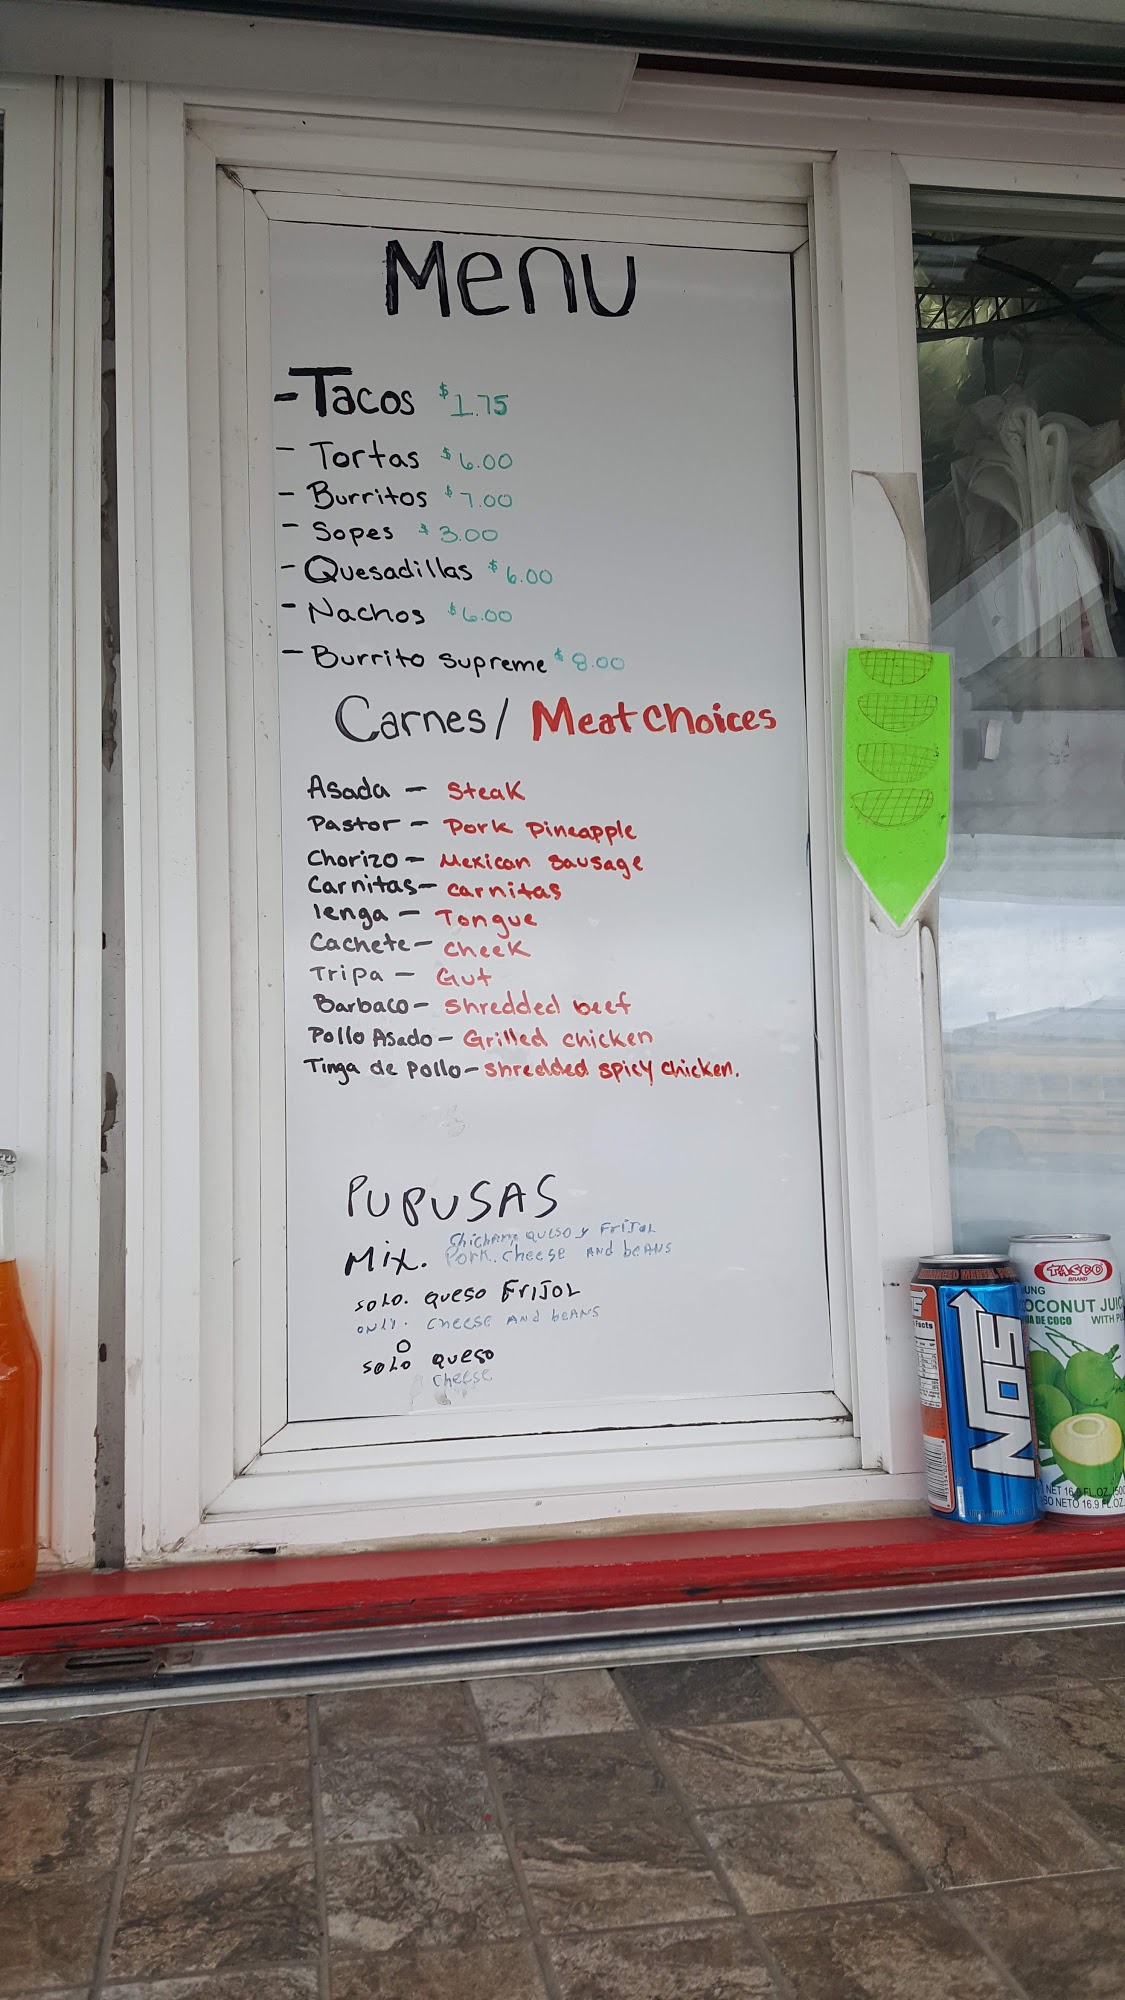 Menu
- Tacos $1.75
- Tortas $6.00
- Burritos $7.00
- Sopes $3.00
- Quesadillas $6.00
- Nachos $6.00
- Burrito supreme $8.00
Carnes/ Meat choices
Asada - Steak
Pastor - Pork pineapple
Chorizo - Mexican sausage
Carnitas - carnitas
lenga - Tongue
Cachete - cheek
Tripa - Gut
Barbaco - shredded beef
Pollo Asado - Grilled chicken
Tinga de pollo - shredded spicy chicken.
PUPUSAS
queso y Frijol
Mix. Pork. cheese AND beANS
solo. queso FRIJOL
only. cheese AND beANS
O
solo queso
cheese
NOS
Facts
TASCO
BRAND
UNG
OCONUT JUIC
UA DE COCO WITH PU
NET 16.9 FL.OZ. (500
SO NETO 16.9 FL.OZ.